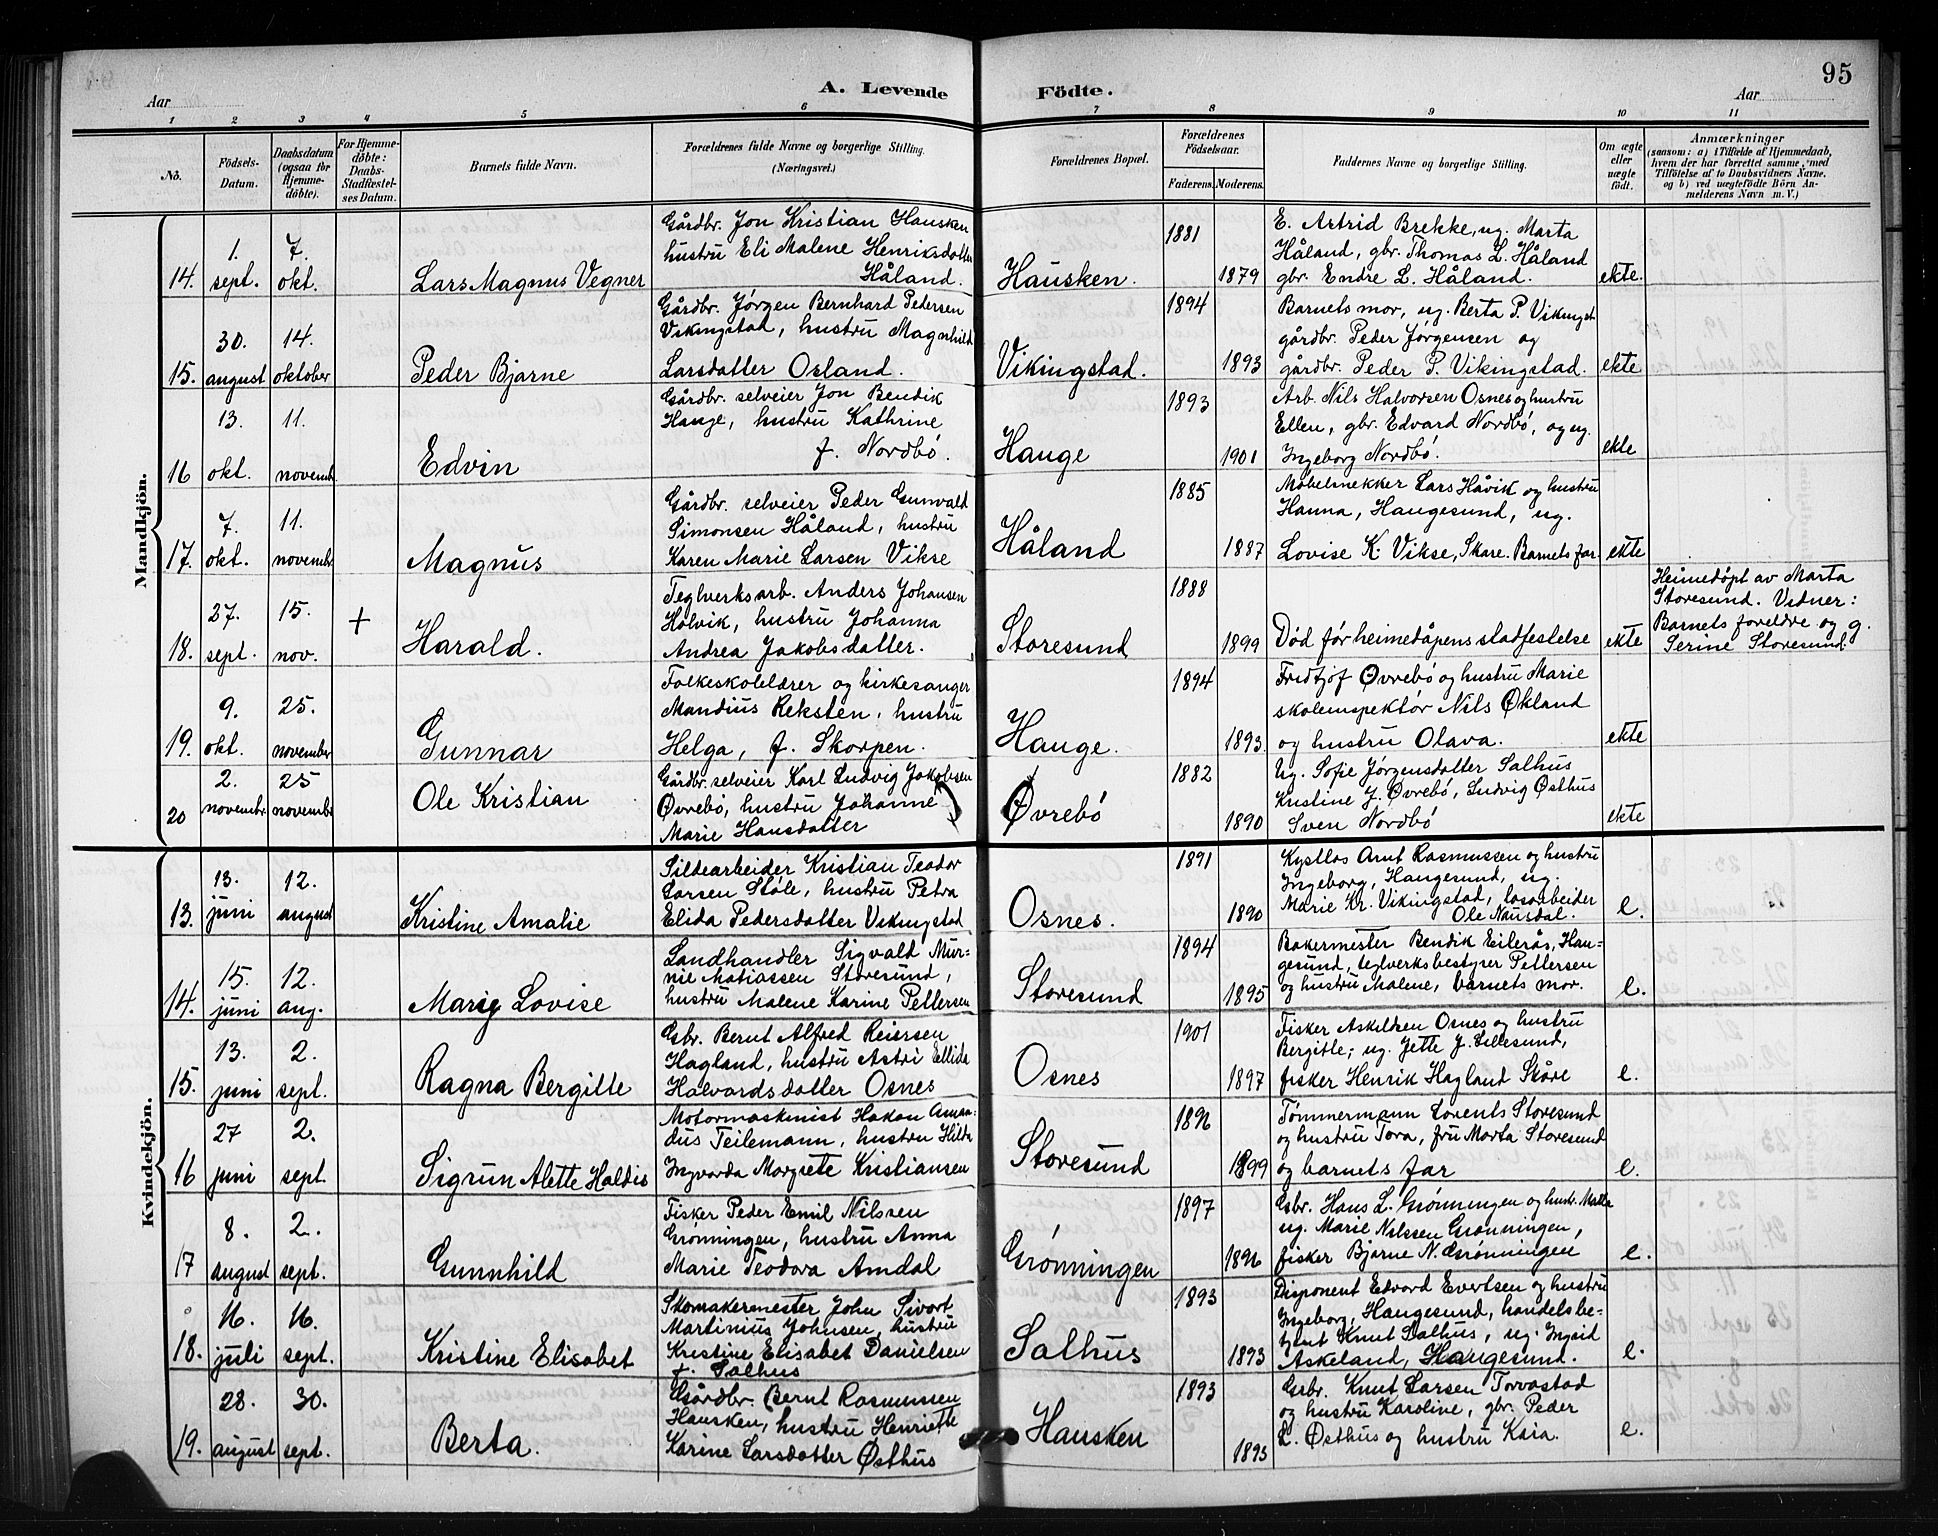 95
Aar
A. Levende
Födte.
Aar
1 2 3 4 5 6 7 8 9 10 11
No.
Födsels-Datum.
Daabsdatum (ogsaa for Hjemme-döbte).
For Hjemme-döbte: Daabs-Stadfæstel-ses Datum.
Barnets fulde Navn.
Forældrenes fulde Navne og borgerlige Stilling.
(Næringsvei.)
Forældrenes Bopæl.
Forældrenes Födselsaar.
Faderens. Moderens.
Faddernes Navne og borgerlige Stilling.
Om ægte eller uægte födt.
Anmærkninger
(saasom: a) i Tilfælde af Hjemmedaab,
hvem der har forrettet samme, med
Tilföielse af to Daabsvidners Navne,
og b) ved uægtefödte Börn An-
melderens Navn m. V.)
Mandkjön.
14. 1. sept. 7. okt. Lars Magnus Vegner
Gårdbr. Jon Kristian Hausken
hustru Eli Malene Henriksdatter
Håland.
Hausken. 1881 1879
E. Astrid Brekke, ug. Marta
Håland, gbr. Thomas L. Håland
gbr. Endre L. Håland.
ekte.
15. 30. august 14. oktober Peder Bjarne
Gårdbr. Jørgen Bernhard Pedersen
Vikingstad, hustru Magnhild
Larsdatter Osland.
Vikingstad. 1894 1893
Barnets mor, ug. Berta P. Vikingst.
gårdbr. Peder Jørgensen og
gårdbr. Peder P. Vikingstad.
ekte
16 13. okt. 11. novembr. Edvin
Gårdbr. selveier Jon Bendik
Hauge, hustru Kathrine
f. Nordbó.
Hauge 1893 1901
Arb. Nils Halvorsen Osnes og hustru
Ellen, gbr. Edvard Nordbó, og ug.
Ingeborg Nordbó.
ekte
17. 7. okt. 11. novembr. Magnus
Gårdbr. selveier Peder Gunvald
Simonsen Håland, hustru
Karen Marie Larsen Vikse
Håland 1885 1887
Møbelsnekker Lars Håvik og hustru
Hanna, Haugesund, ug.
Lovise K. Vikse, Skare. Barnets far.
ekte
18. 27. sept. 15. nov. + Harald.
Teglverksarb. Anders Johansen
Holvik, hustru Johanna
Andrea Jakobsdatter.
Storesund 1888 1899
Død før heimedåpens stadfestelse
ekte
Heimedøpt av Marta
Storesund. Vidner:
Barnets foreldre og g.
Serine Storesund.
19. 9. okt. 25. november Gunnar
Folkeskolelærer og kirkesanger
Mandius Reksten, hustru
Helga, f. Skorpen.
Hauge. 1894 1893.
Fridtjof Øvrebó og hustru Marie
skoleinspektór Nils Økland
og hustru Olava.
ekte
20 2. novembr. 25 novembr. Ole Kristian
Gårdbr. selveier Karl Ludvig Jakobsen
Øvrebó, hustru Johanne
Marie Hansdatter
Øvrebó 1882 1890
Ug. Sofie Jørgensdatter Salhus
Kristine J. Øvrebó, Ludvig Østhus
Sven Nordbó
ekte
Kvindekjön.
13. 13. juni 12. august Kristine Amalie
Sildearbeider Kristian Teodor
Larsen Støle, hustru Petra
Elida Pedersdatter Vikingstad
Osnes. 1891 1890
Kystlos Arnt Rasmussen og hustru
Ingeborg, Haugesund, ug.
Marie Kr. Vikingstad, losarbeider
Ole Nausdal.
e.
14. 15. juni 12. aug. Marie Lovise
Landhandler Sigvald Mur-
nie Matiassen Storesund,
hustru Malene Karine Pettersen
Storesund 1894 1895
Bakermester Bendik Eilerås, Hau-
gesund, teglverksbestyrer Pettersen
og hustru Malene, barnets mor.
e.
15. 13. juni 2. sept. Ragna Bergitte
Gbr. Bernt Alfred Reiersen
Hagland, hustru Astri Ellida
Halvardsdatter Osnes
Osnes 1901 1897
Fisker Askeldsen Osnes og hustru
Bergitte; ug. Jette J. Lillesund,
fisker Henrik Hagland Skåre
e.
16 27 juni 2. sept. Sigrun Alette Haldis
Motormaskinist Hakon Aman-
dus Teilemann, hustru Hilda
Ingvarda Margrete Kristiansen
Storesund 1896 1899
Tømmermann Lorents Storesund
og hustru Tora, fru Marta Storesund
og barnets far
e.
17 8. august 2. sept. Gunnhild
Fisker Peder Emil Nilsen
Grønningen, hustru Anna
Marie Teodora Amdal
Grønningen 1897 1896
Gbr. Hans L. Grønningen og hustr. Malla
ug. Marie Nilssen Grønningen,
fisker Bjarne N. Grønningen
e.
18. 16. juli 16. sept. Kristine Elisabet
Skomakermester John Sivert
Martinius Johnsen, hustru
Kristine Elisabet Danielsen
f. Salhus
Salhus 1893 1893
Disponent Edvard Evertsen og hustru
Ingeborg, Haugesund, handelsbe-
tjent Knut Salhus, ug. Ingrid
Askeland, Haugesund.
e.
19. 28. august 30. sept. Berta.
Gårdbr. Bernt Rasmussen
Hausken, hustru Henriette
Karine Larsdatter Østhus
Hausken 1893 1893
Gbr. Knut Larsen Torvastad
og hustru Karoline, gbr. Peder
L. Østhus og hustru Kaia.
e.